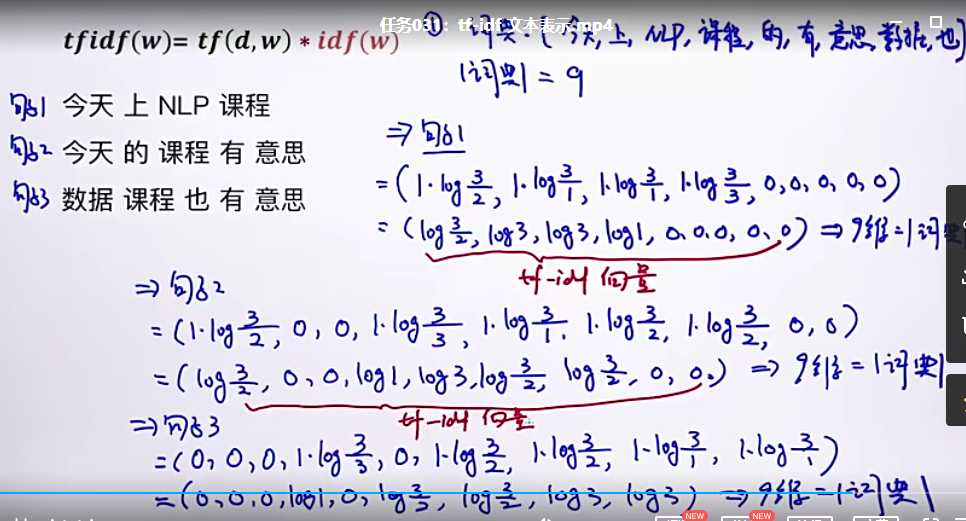 任务031：tf-idf 文本表示.mp4
tfidf(w)= tf(d,w) * idf(w)
① 词典：[今天, 上, NLP, 课程, 的, 有, 意思, 数据, 也]
|词典| = 9
句子1 今天 上 NLP 课程
句子2 今天 的 课程 有 意思
句子3 数据 课程 也 有 意思
⇒ 句子1
= (1·log 3/2, 1·log 3/1, 1·log 3/1, 1·log 3/3, 0, 0, 0, 0, 0)
= (log 3/2, log3, log3, log1, 0, 0, 0, 0, 0) ⇒ 9维 = |词典
tf-idf 向量
⇒ 句子2
= (1·log 3/2, 0, 0, 1·log 3/3, 1·log 3/1, 1·log 3/2, 1·log 3/2, 0, 0)
= (log 3/2, 0, 0, log1, log3, log 3/2, log 3/2, 0, 0) ⇒ 9维 = |词典|
tf-idf 向量
⇒ 句子3
= (0, 0, 0, 1·log 3/3, 0, 1·log 3/2, 1·log 3/2, 1·log 3/1, 1·log 3/1)
= (0, 0, 0, log1, 0, log 3/2, log 3/2, log3, log3) ⇒ 9维 = |词典|
NEW NEW